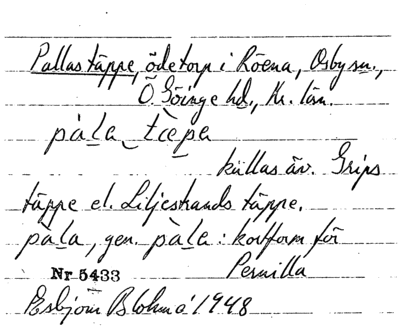 Pallastäppe, ödetorp i Röena, Osby sn.,
Ö. Göinge hd., Kr. län.
pàla_tæpa
kallas äv. Grips
täppe el. Liljestrands täppe.
pàla, gen. pàla: kortform för
Pernilla
Nr 5433
Esbjörn Blohmé 1948